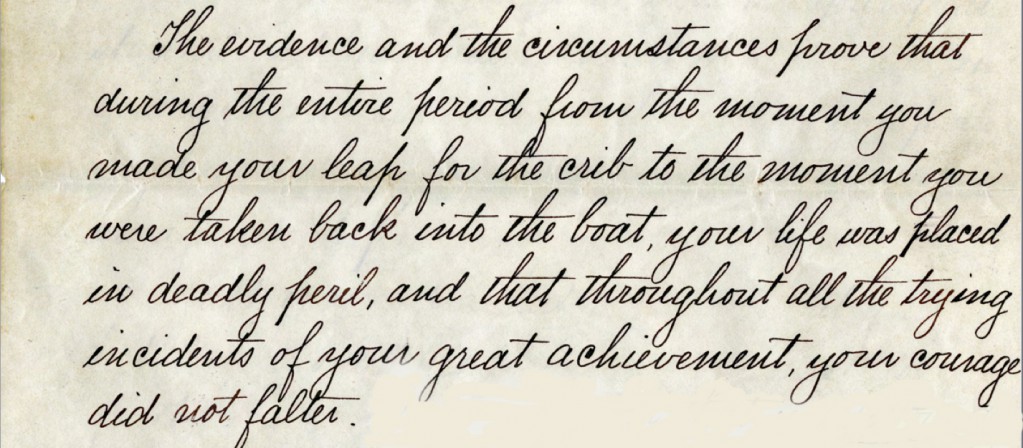 The evidence and the circumstances prove that
during the entire period from the moment you
made your leap for the crib to the moment you
were taken back into the boat, your life was placed
in deadly peril, and that throughout all the trying
incidents of your great achievement, your courage
did not falter.